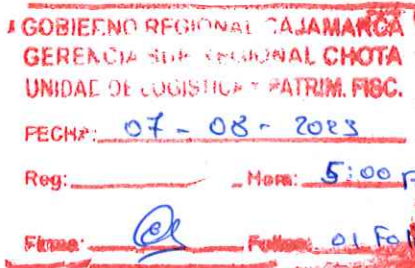 GOBIERNO REGIONAL CAJAMARCA
GERENCIA SUB REGIONAL CHOTA
UNIDAD DE LOGISTICA Y PATRIM. FISC.
FECHA: 07 - 08 - 2023
Reg: Hora: 5:00
Firma: Folios: 01 Fol